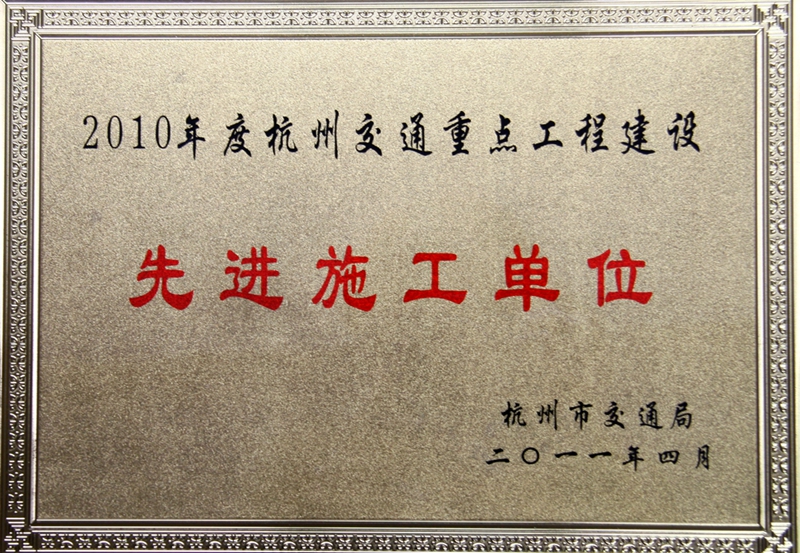 2010年度杭州交通重点工程建设
先进施工单位
杭州市交通局
二〇一一年四月